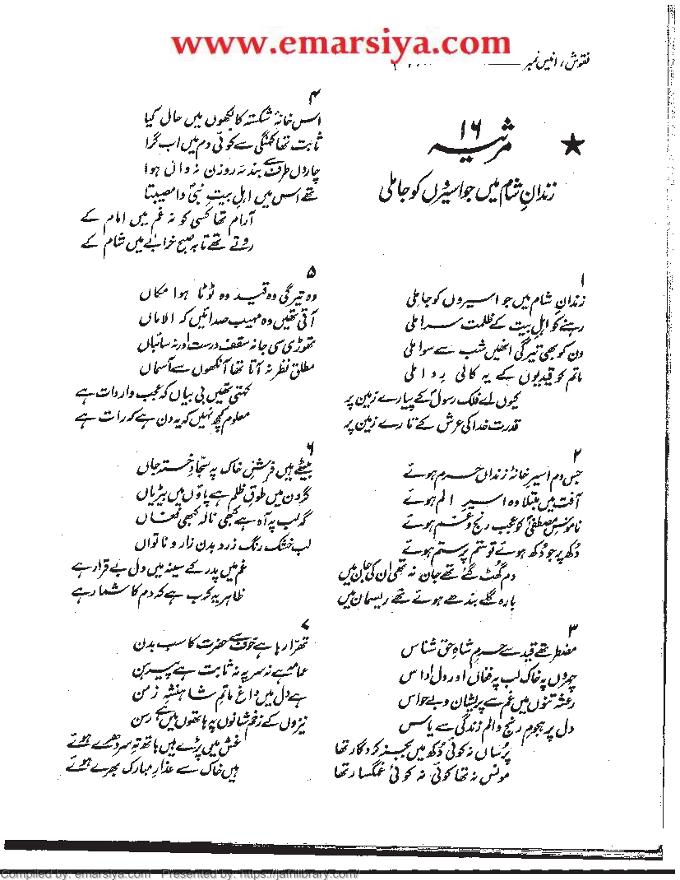 www.emarsiya.com
نقوش، انیس نمبر
★
مرثیہ
۱۶
زندانِ شام میں جو اسیروں کو جا ملی
۱
زندانِ شام میں جو اسیروں کو جا ملی
رہنے کو اہلِ بیت کے ظلمت سرا ملی
دن کو بھی تیرگی انھیں شب سے سوا ملی
ماتم کو قیدیوں کے یہ کالی رِدا ملی
کیوں اے فلک رسولؐ کے پیارے زمین پر
قدرت خدا کی عرش کے تارے زمین پر
۲
جس دم اسیرِ خانۂ زنداں حرم ہوئے
آفت میں مبتلا وہ اسیرِ الم ہوئے
ناموسِ مصطفیٰؐ کو عجب رنج و غم ہوئے
دُکھ پر جو دُکھ ہوئے تو ستم پر ستم ہوئے
دم گھٹ گئے تھے جان نہ تھی ان کی جان میں
بارہ گلے بندھے ہوئے تھے ریسمان میں
۳
مضطر تھے قید سے حرمِ شاہِ حق شناس
چہروں پہ خاک لب پہ فغاں اور دل اداس
رعشہ تنوں میں غم سے پریشان و بے حواس
دل پر ہجومِ رنج و الم زندگی سے یاس
پُرساں نہ کوئی دُکھ میں بجز کردگار تھا
مونس نہ تھا کوئی نہ کوئی غمگسار تھا
۴
اس خانۂ شکستہ کا لکھوں میں حال کیا
ثابت تھا کہنگی سے کوئی دم میں اب گرا
چاروں طرف سے بند نہ روزن نہ واں ہوا
تھے اس میں اہلِ بیتِ نبیؐ وا مصیبتا
آرام تھا کسی کو نہ غم میں امام کے
روتے تھے تا بہ صبح خرابے میں شام کے
۵
وہ تیرگی وہ قید وہ ٹوٹا ہوا مکاں
آتی تھیں وہ مہیب صدائیں کہ الاماں
تھوڑی سی جا نہ سقف درست اور نہ سائباں
مطلق نظر نہ آتا تھا آنکھوں سے آسماں
کہتی تھیں بی بیاں کہ عجب واردات ہے
معلوم کچھ نہیں کہ یہ دن ہے کہ رات ہے
۶
بیٹھے ہیں فرشِ خاک پہ سجّادِ خستہ جاں
گردن میں طوقِ ظلم ہے پاؤں میں بیڑیاں
گہ لب پہ آہ ہے کبھی نالہ کبھی فغاں
لب خشک رنگ زرد بدن زار و ناتواں
غم میں پدر کے سینہ میں دل بے قرار ہے
ظاہر یہ کرب ہے کہ دم کا شمار ہے
۷
تھرّا رہا ہے خوف سے حضرت کا سب بدن
عمامہ ہے نہ سر پہ نہ ثابت ہے پیرہن
ہے دل میں داغِ ماتمِ شاہنشہِ زمن
نیزوں کے زخم شانوں پہ ہاتھوں میں ہے رسن
غش میں پڑے ہیں ہاتھ تو سر دھرے ہوئے
ہیں خاک سے عذارِ مبارک بھرے ہوئے
Compiled by: emarsiya.com Presented by: https://jafrilibrary.com/